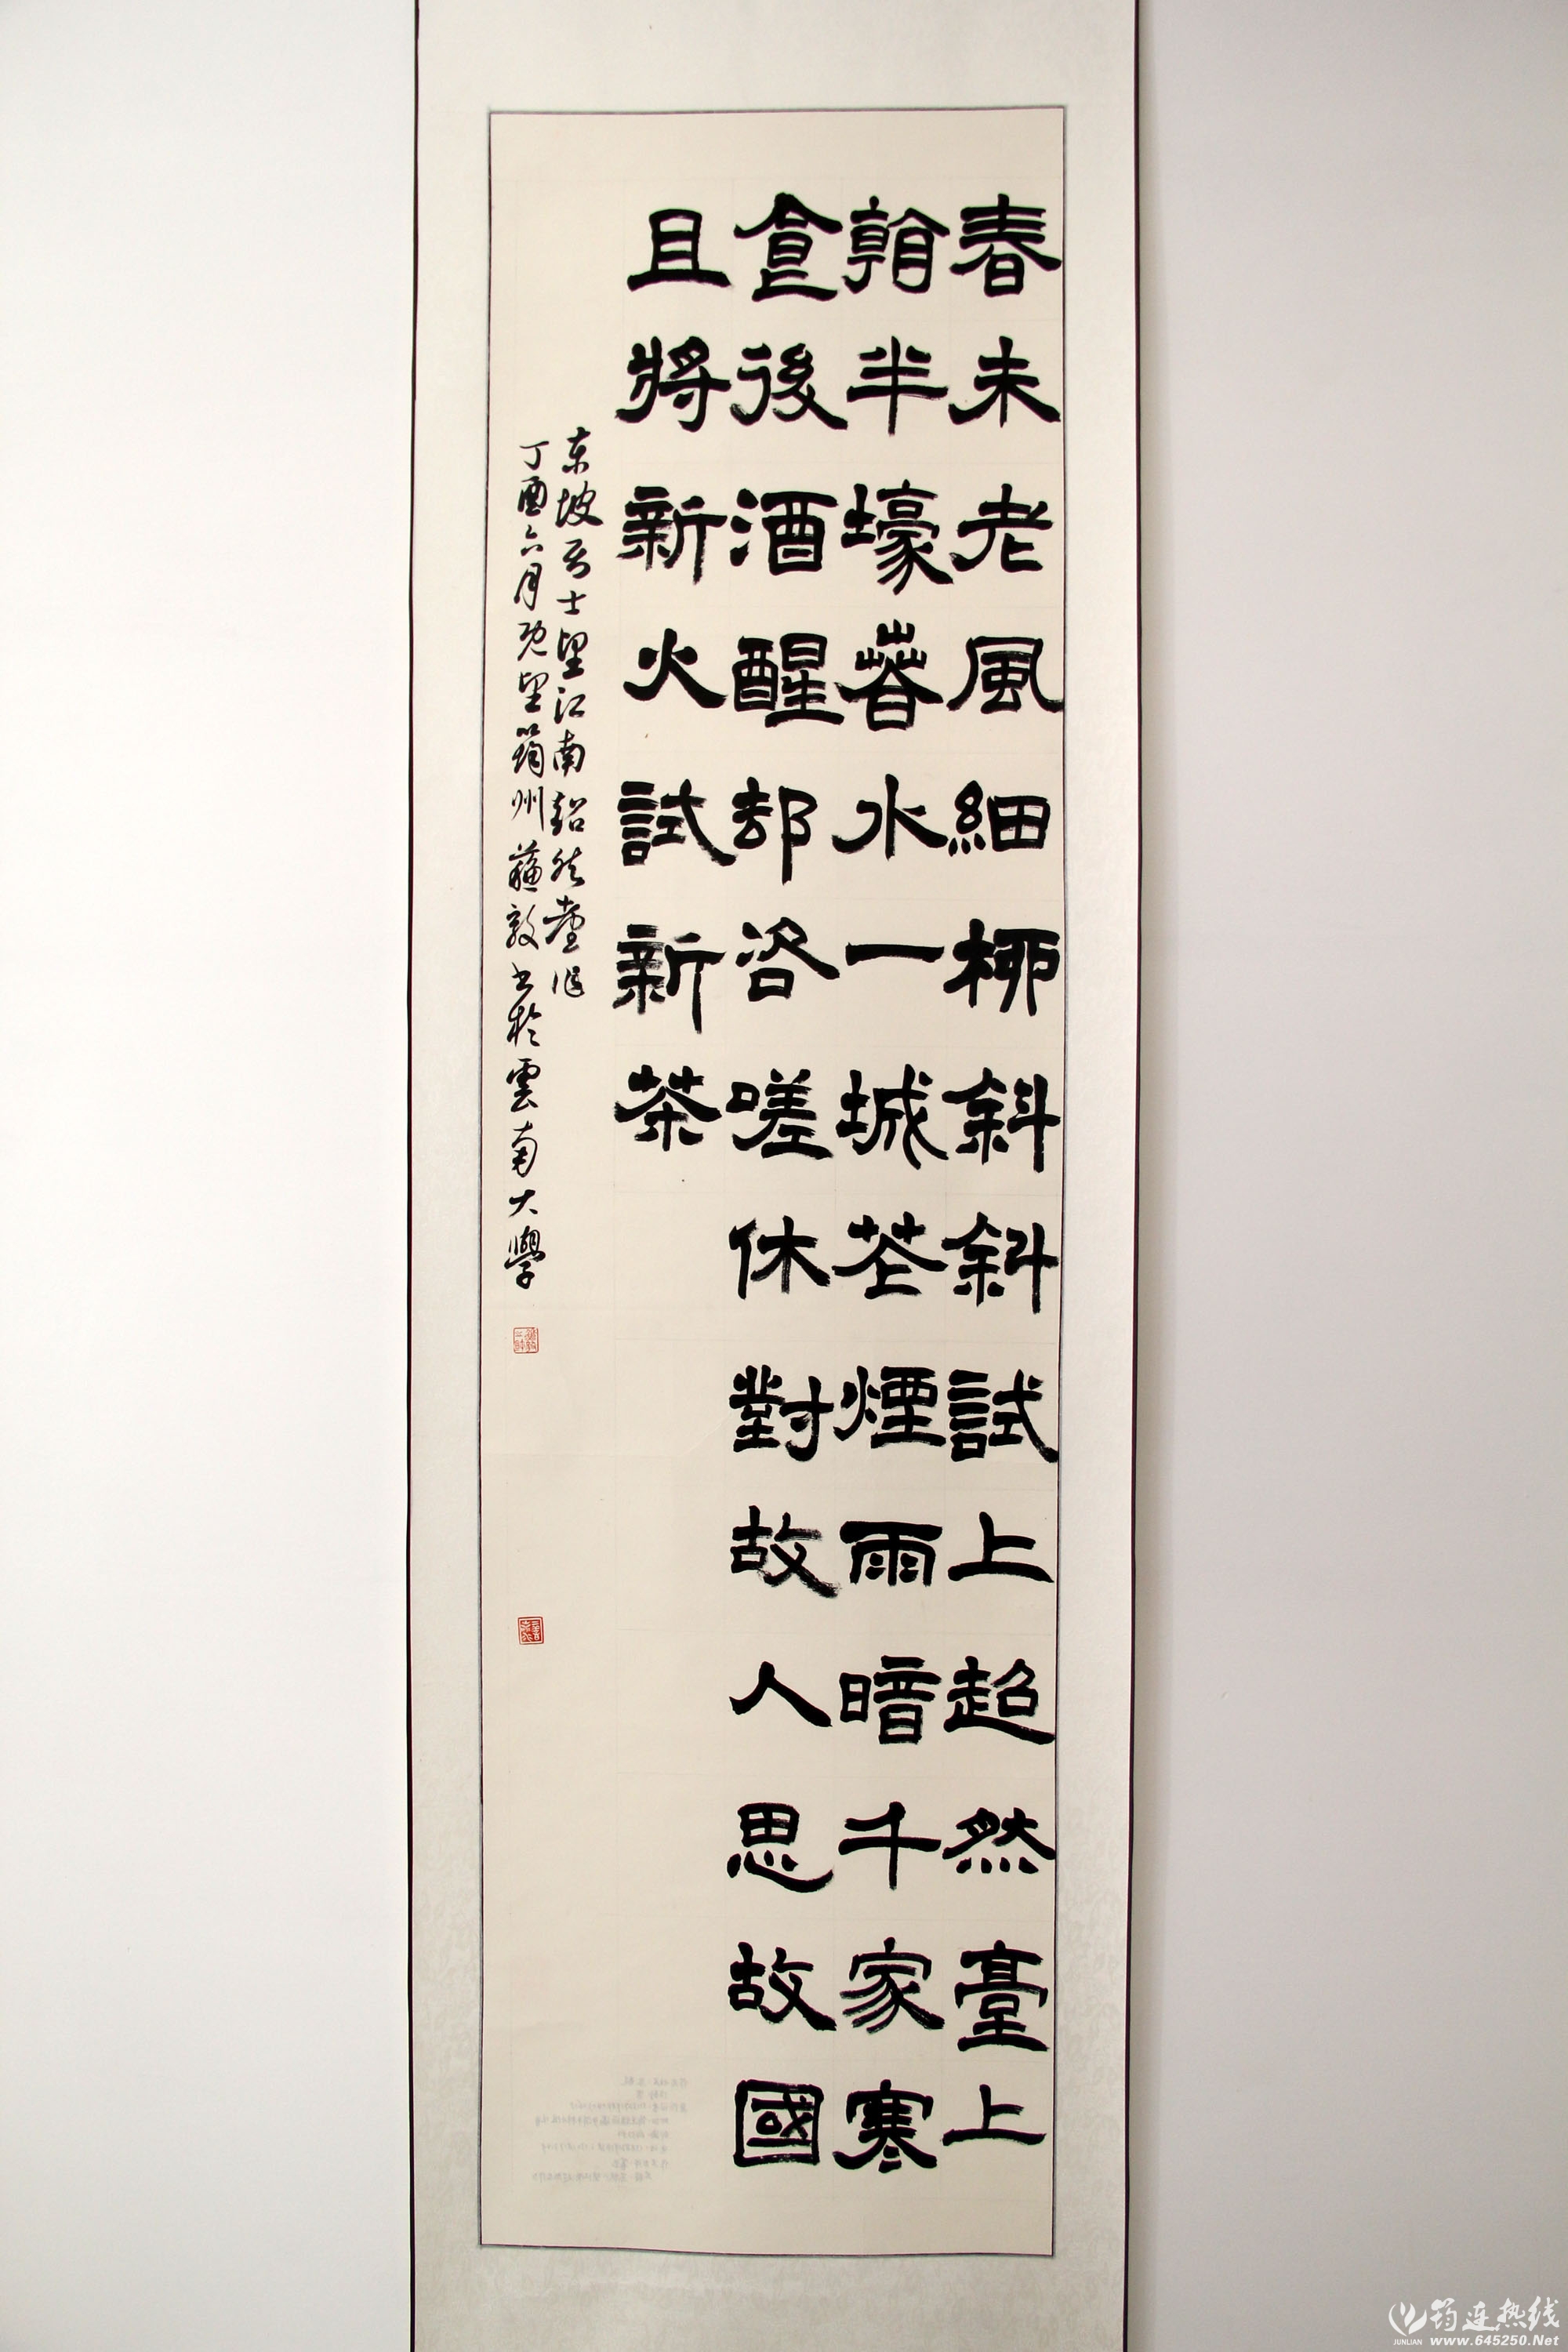 春未老風細柳斜斜試上超然臺上
看半壕春水一城花煙雨暗千家寒
食後酒醒却咨嗟休對故人思故國
且將新火試新茶
东坡居士望江南超然臺作
丁酉六月既望筠州蘇敦书於雲南大學
筠连热线
JUNLIAN www.645250.Net